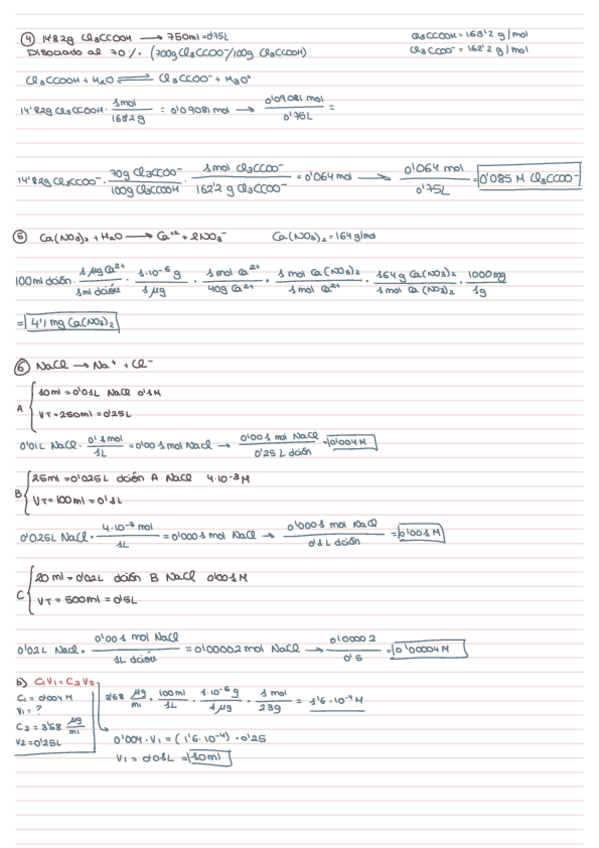 ④ 14'82g Cl₃CCOOH → 750ml=0'75L Cl₃CCOOH = 163'2 g/mol
Disociado al 70%. (700g Cl₃CCOO⁻/100g Cl₃CCOOH) Cl₃CCOO⁻ = 162'2 g/mol
Cl₃CCOOH + H₂O ⇌ Cl₃CCOO⁻ + H₃O⁺
14'82g Cl₃CCOOH · 1mol / 163'2 g = 0'09081 mol → 0'09081 mol / 0'75L =
14'82g Cl₃CCOO⁻ · 70g Cl₃CCOO⁻ / 100g Cl₃CCOOH · 1 mol Cl₃CCOO⁻ / 162'2 g Cl₃CCOO⁻ = 0'064 mol → 0'064 mol / 0'75L = 0'085 M Cl₃CCOO⁻
⑤ Ca(NO₃)₂ + H₂O → Ca⁺² + 2NO₃⁻ Ca(NO₃)₂ = 164 g/mol
100ml dción · 1 µg Ca²⁺ / 1ml dción · 1·10⁻⁶ g / 1 µg · 1 mol Ca²⁺ / 40g Ca²⁺ · 1 mol Ca(NO₃)₂ / 1 mol Ca²⁺ · 164 g Ca(NO₃)₂ / 1 mol Ca(NO₃)₂ · 1000mg / 1g
= 4'1 mg Ca(NO₃)₂
⑥ NaCl → Na⁺ + Cl⁻
A 10ml = 0'01L NaCl 0'1M
VT = 250ml = 0'25L
0'01L NaCl · 0'1mol / 1L = 0'001 mol NaCl → 0'001 mol NaCl / 0'25 L dción = 0'004 M
B 25ml = 0'025L dción A NaCl 4·10⁻³ M
VT = 100ml = 0'1L
0'025L NaCl · 4·10⁻³ mol / 1L = 0'0001 mol NaCl → 0'0001 mol NaCl / 0'1L dción = 0'001 M
C 20ml = 0'02L dción B NaCl 0'001M
VT = 500ml = 0'5L
0'02L NaCl · 0'001 mol NaCl / 1L dción = 0'00002 mol NaCl → 0'00002 / 0'5 = 0'00004 M
b) C₁V₁ = C₂V₂
C₁ = 0'004 M
V₁ = ?
C₂ = 3'68 µg/ml
V₂ = 0'25L
3'68 µg/ml · 100ml / 1L · 1·10⁻⁶ g / 1 µg · 1 mol / 23g = 1'6·10⁻⁴ M
0'004 · V₁ = (1'6·10⁻⁴) · 0'25
V₁ = 0'01L = 10ml